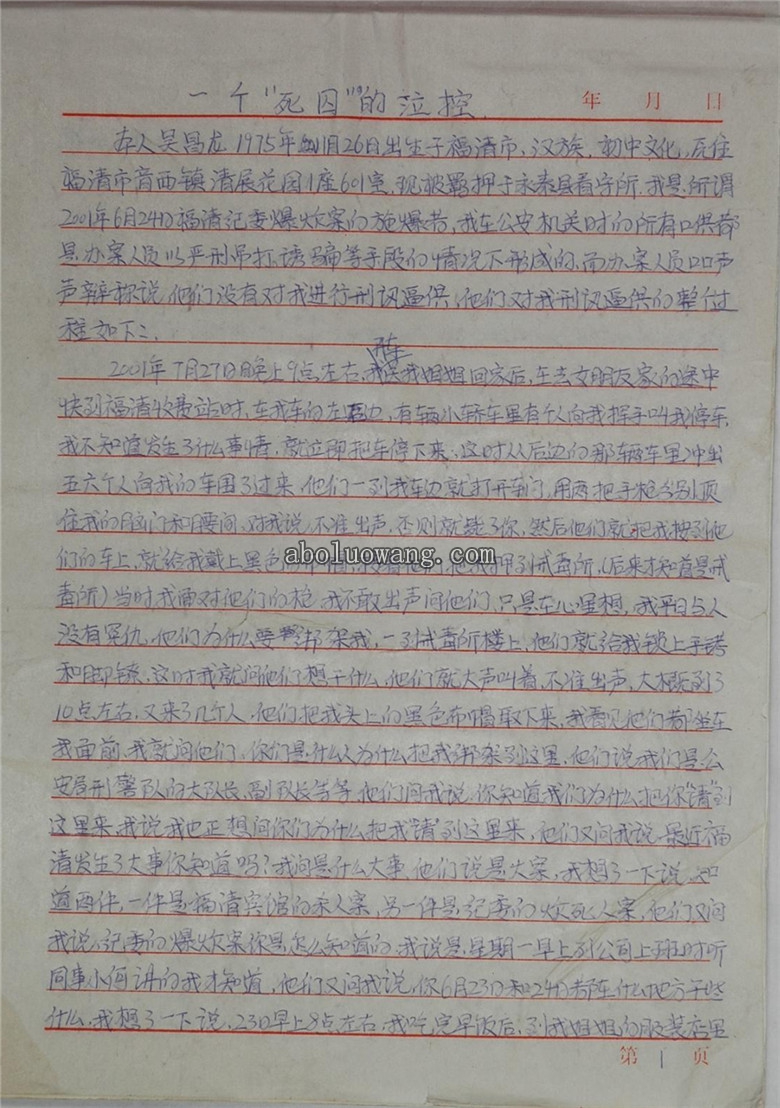 一个“死囚”的泣控
年 月 日
本人吴昌龙1975年11月26日出生于福清市，汉族，初中文化，居住
福清市音西镇清展花园1座601室，现被羁押于永泰县看守所，我是所谓
2001年6月24日福清纪委爆炸案的施爆者，我在公安机关时的所有口供都
是办案人员以严刑吊打、诱骗等手段的情况下形成的，而办案人员口口声
声辩称说，他们没有对我进行刑讯逼供，他们对我刑讯逼供的整个过
程如下：
2001年7月27日晚上9点左右，我载我姐姐回家后，在去女朋友家的途中
快到福清收费站时，在我车的左边，有辆小轿车里有个人向我挥手叫我停车，
我不知道发生了什么事情，就立即把车停下来，这时从后边的那辆车里冲出
五六个人向我的车围了过来，他们一到我车边就打开车门，用两把手枪分别顶
住我的脑门和腰间，对我说，不准出声，否则就毙了你，然后他们就把我按到他
们的车上，就给我戴上黑色的 把我押到戒毒所，（后来才知道是戒
毒所）当时我面对他们的枪，我不敢出声问他们，只是在心里想，我平日与人
没有冤仇，他们为什么要绑架我，一到戒毒所楼上，他们就给我锁上手铐
和脚镣，这时我就问他们想干什么，他们就大声叫着，不准出声，大概到了
10点左右，又来了几个人，他们把我头上的黑色布帽取下来，我看见他们都坐在
我面前，我就问他们，你们是什么人为什么把我绑架到这里，他们说我们是公
安局刑警队的大队长、副队长等等，他们问我说，你知道我们为什么把你“请”到
这里来，我说我也正想问你们为什么把我“请”到这里来，他们又问我说，最近福
清发生了大事你知道吗？我问是什么大事，他们说是大案，我想了一下说，知
道两件，一件是福清宾馆的杀人案，另一件是纪委的炸死人案，他们又问
我说，纪委的爆炸案你是怎么知道的，我说是星期一早上到公司上班时听
同事小何讲的我才知道，他们又问我说，你6月23日和24日都在什么地方干些
什么，我想了一下说，23日早上8点左右，我吃完早饭后，到我姐姐的服装店里
第 1 页
aboluowang.com